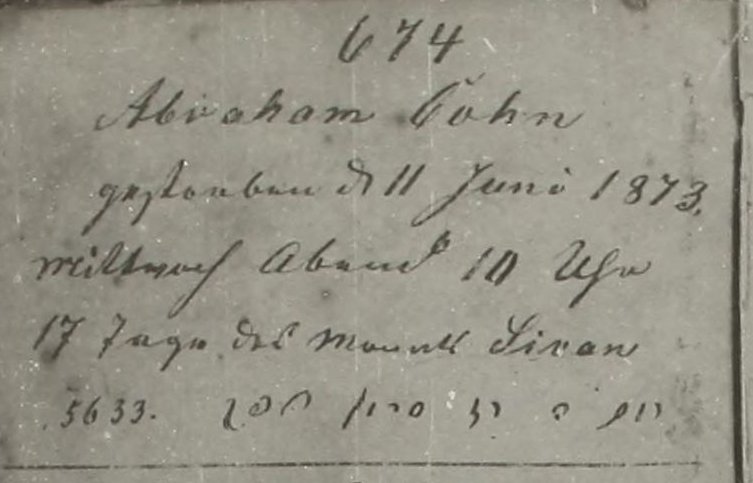 674
Abraham Cohn
gestorben d 11 Juni 1873.
Mittwoch Abend 10 Uhr
17 Tage des Monats Sivan
5633. יום ה יז סיון